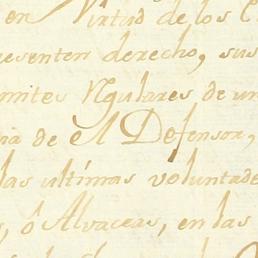 en Virtud de los C
resenten derecho, sus
mites Rgulares de un
ia de el Defensor,
las ultimas voluntade
s, ô Alvaceas, en las